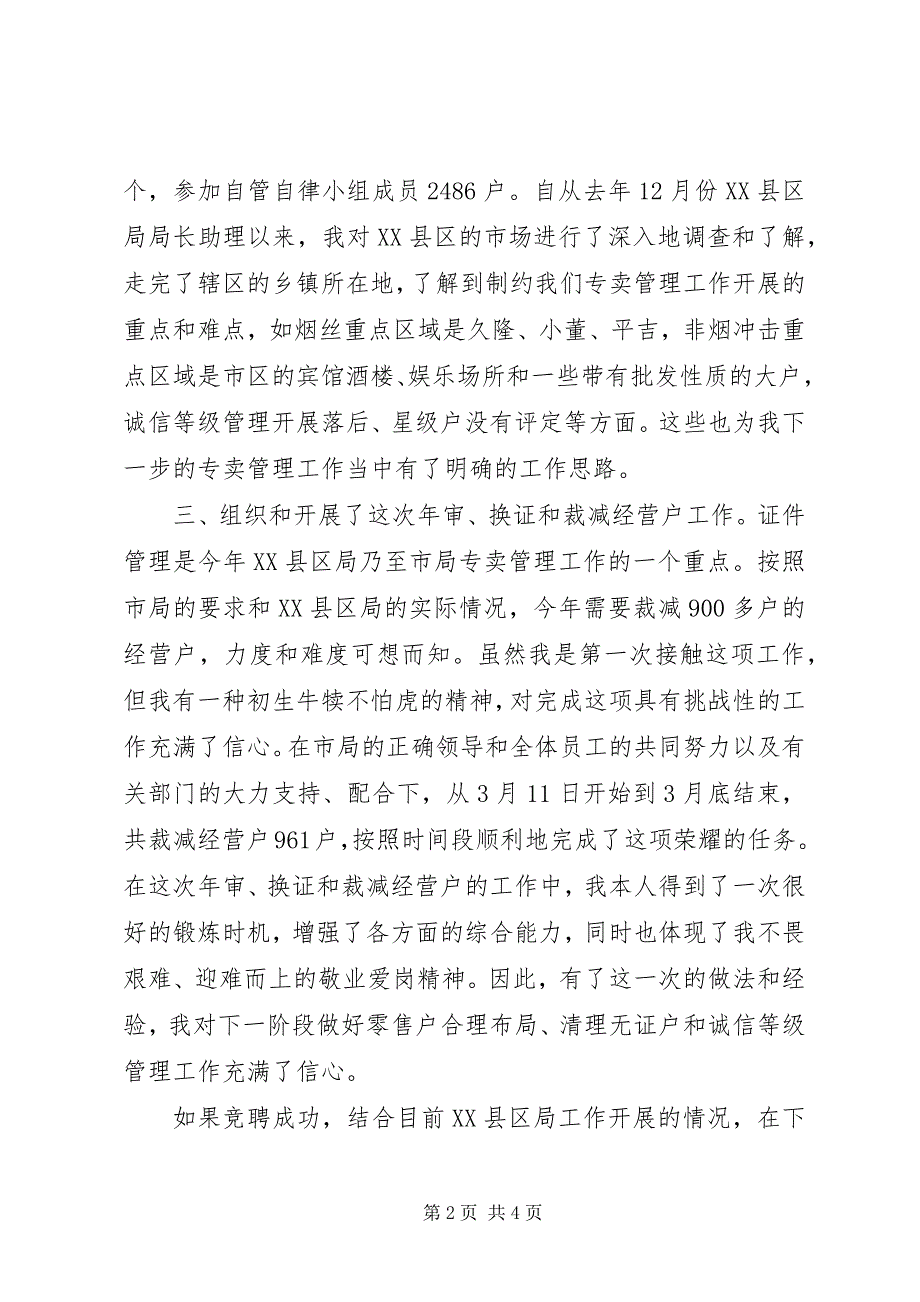 个，参加自管自律小组成员 2486 户。自从去年 12 月份 XX 县区
局局长助理以来，我对 XX 县区的市场进行了深入地调查和了解，
走完了辖区的乡镇所在地，了解到制约我们专卖管理工作开展的
重点和难点，如烟丝重点区域是久隆、小董、平吉，非烟冲击重
点区域是市区的宾馆酒楼、娱乐场所和一些带有批发性质的大户，
诚信等级管理开展落后、星级户没有评定等方面。这些也为我下
一步的专卖管理工作当中有了明确的工作思路。
三、组织和开展了这次年审、换证和裁减经营户工作。证件
管理是今年 XX 县区局乃至市局专卖管理工作的一个重点。按照
市局的要求和 XX 县区局的实际情况，今年需要裁减 900 多户的
经营户，力度和难度可想而知。虽然我是第一次接触这项工作，
但我有一种初生牛犊不怕虎的精神，对完成这项具有挑战性的工
作充满了信心。在市局的正确领导和全体员工的共同努力以及有
关部门的大力支持、配合下，从 3 月 11 日开始到 3 月底结束，
共裁减经营户 961 户，按照时间段顺利地完成了这项荣耀的任务。
在这次年审、换证和裁减经营户的工作中，我本人得到了一次很
好的锻炼时机，增强了各方面的综合能力，同时也体现了我不畏
艰难、迎难而上的敬业爱岗精神。因此，有了这一次的做法和经
验，我对下一阶段做好零售户合理布局、清理无证户和诚信等级
管理工作充满了信心。
如果竞聘成功，结合目前 XX 县区局工作开展的情况，在下
第 2 页 共 4 页